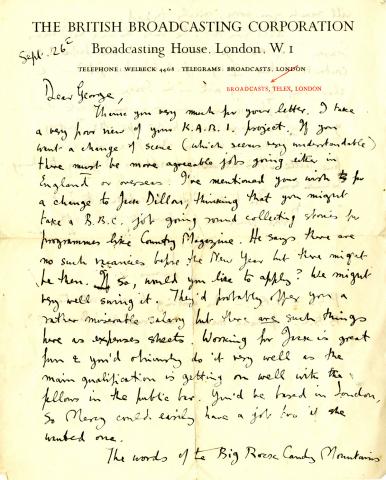 THE BRITISH BROADCASTING CORPORATION
Broadcasting House, London, W.1
TELEPHONE: WELBECK 4468 TELEGRAMS: BROADCASTS, LONDON
BROADCASTS, TELEX, LONDON
Sept. 26
Dear George,
Thank you very much for your letter. I take
a very poor view of your K.A.R.I. project. If you
want a change of scene (which seems very understandable)
there must be more agreeable jobs going either in
England or overseas. I've mentioned your wish for
a change to Jack Dillon, thinking that you might
take a B.B.C. job going round collecting stories for
programmes like Country Magazine. He says there are
no such vacancies before the New Year but there might
be then. If so, would you like to apply? We might
very well swing it. They'd probably offer you a
rather miserable salary but there are such things
here as expenses sheets. Working for Jack is great
fun & you'd obviously do it very well as the
main qualification is getting on well with the
fellows in the public bar. You'd be based in London,
so Mercy could easily have a job too if she
wanted one.
The words of the Big Rock Candy Mountains